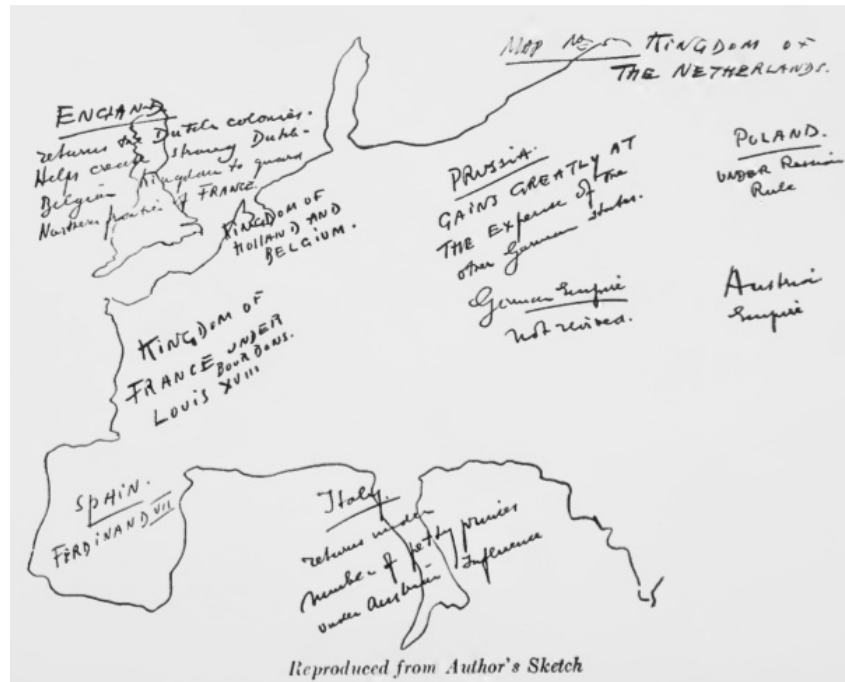 MAP No 5 KINGDOM OF
THE NETHERLANDS.
ENGLAND
returns the Dutch colonies.
Helps create strong Dutch-
Belgian Kingdom to guard
Northern frontier of FRANCE.
KINGDOM OF
HOLLAND AND
BELGIUM.
PRUSSIA.
GAINS GREATLY AT
THE EXPENSE of the
other German States.
German Empire
not revived.
POLAND.
UNDER Russian
Rule
Austria
Empire
KINGDOM OF
FRANCE UNDER
BOURBONS.
LOUIS XVIII
SPAIN.
FERDINAND VII
Italy.
returns under
number of petty princes
under Austrian Influence
Reproduced from Author's Sketch